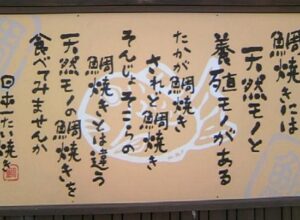 鯛焼きには
天然モノと
養殖モノがある
たかが鯛焼き
されど鯛焼き
そんじょそこらの
鯛焼きとは違う
天然モノの鯛焼きを
食べてみませんか
日本一たい焼き